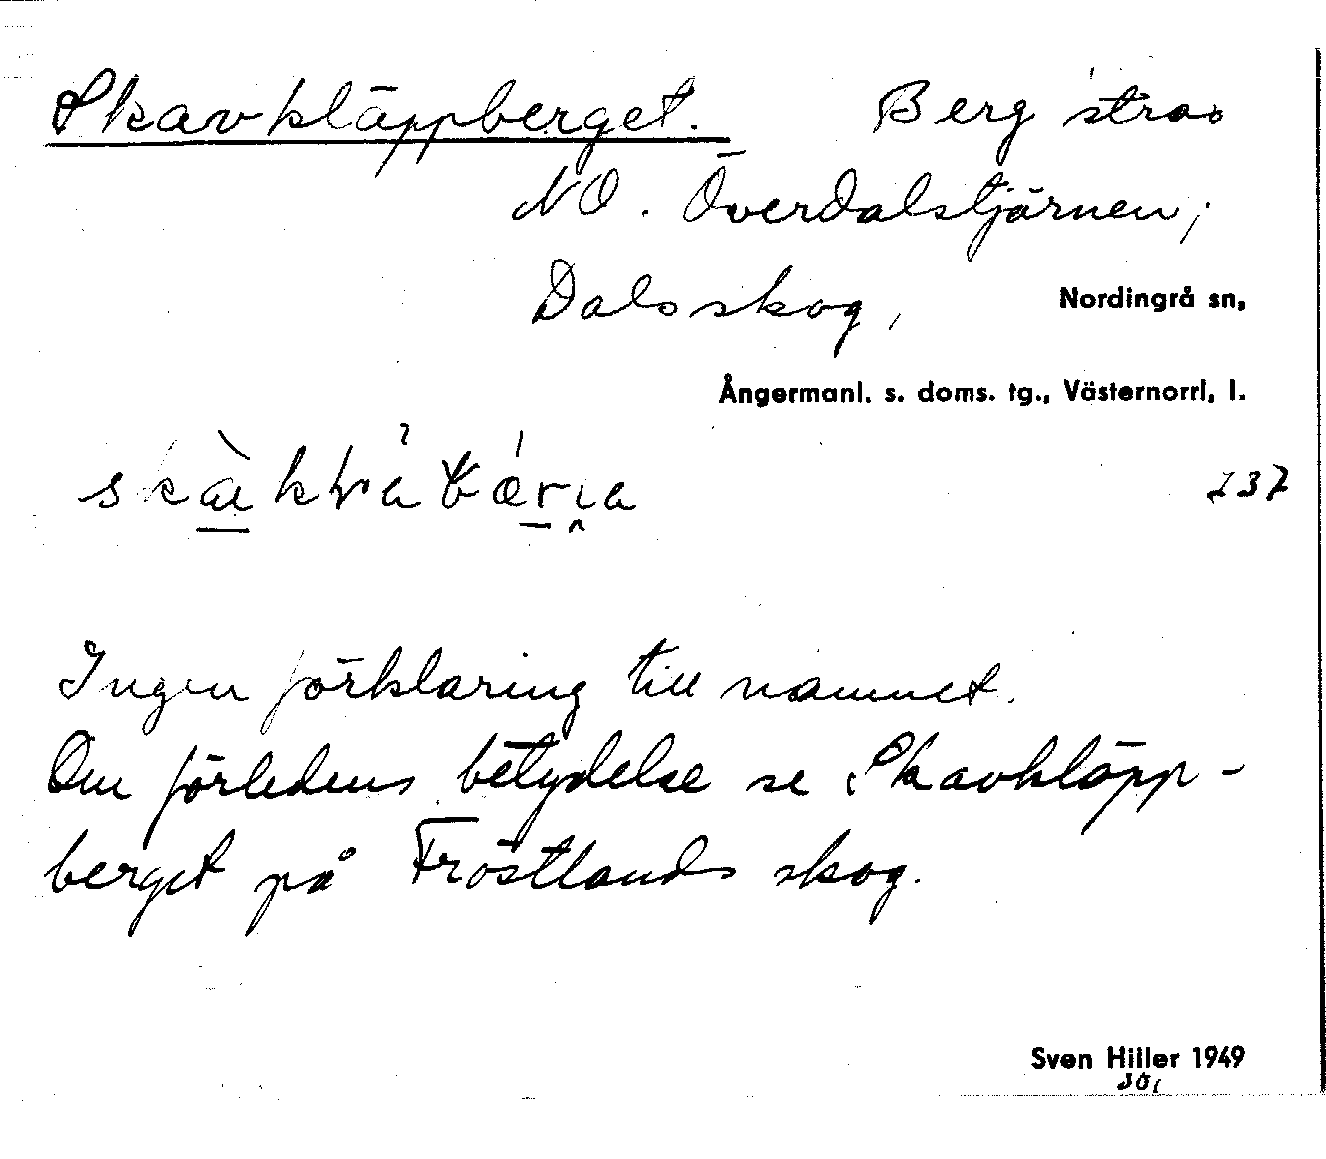 Skavkläppberget. Berg strax
NO. Överdalstjärnen,
Dals skog, Nordingrå sn,
Ångermanl. s. doms. tg., Västernorrl. l.
237
Ingen förklaring till namnet.
Om förledens betydelse se Skavkläpp-
berget på Fröstlands skog.
Sven Hiller 1949